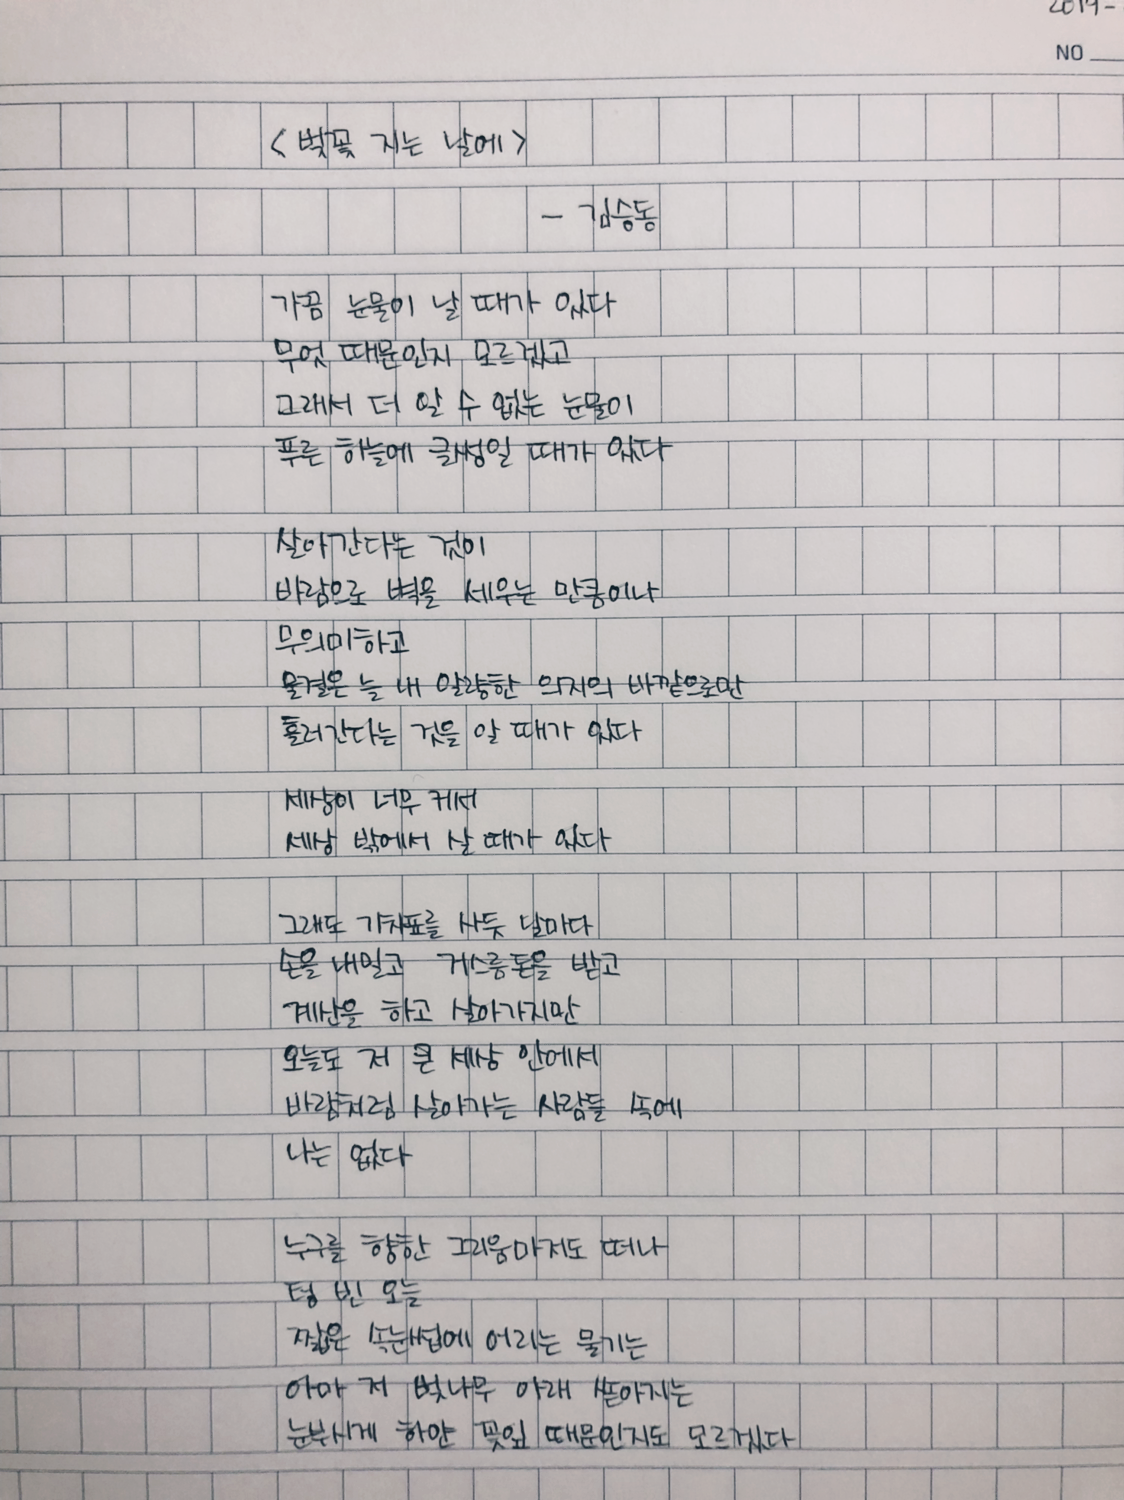 2019-
NO
<벚꽃 지는 날에>
- 김승동
가끔 눈물이 날 때가 있다
무엇 때문인지 모르겠고
그래서 더 알 수 없는 눈물이
푸른 하늘에 글썽일 때가 있다
살아간다는 것이
바람으로 벽을 세우는 만큼이나
무의미하고
물결은 늘 내 알량한 의지의 바깥으로만
흘러간다는 것을 알 때가 있다
세상이 너무 커서
세상 밖에서 살 때가 있다
그래도 기차표를 사듯 날마다
손을 내밀고 거스름돈을 받고
계산을 하고 살아가지만
오늘도 저 큰 세상 안에서
바람처럼 살아가는 사람들 속에
나는 없다
누구를 향한 그리움마저도 떠나
텅 빈 오늘
짧은 속눈썹에 어리는 물기는
아마 저 벚나무 아래 쏟아지는
눈부시게 하얀 꽃잎 때문인지도 모르겠다